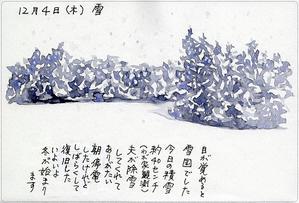 12月4日(木) 雪
目が覚めると
雪国でした
今日の積雪
約40センチ
(わが家観測)
夫が除雪
してくれて
ありがたい
朝停電
したけれど
しばらくして
復旧した
いよいよ
冬が始まり
ます